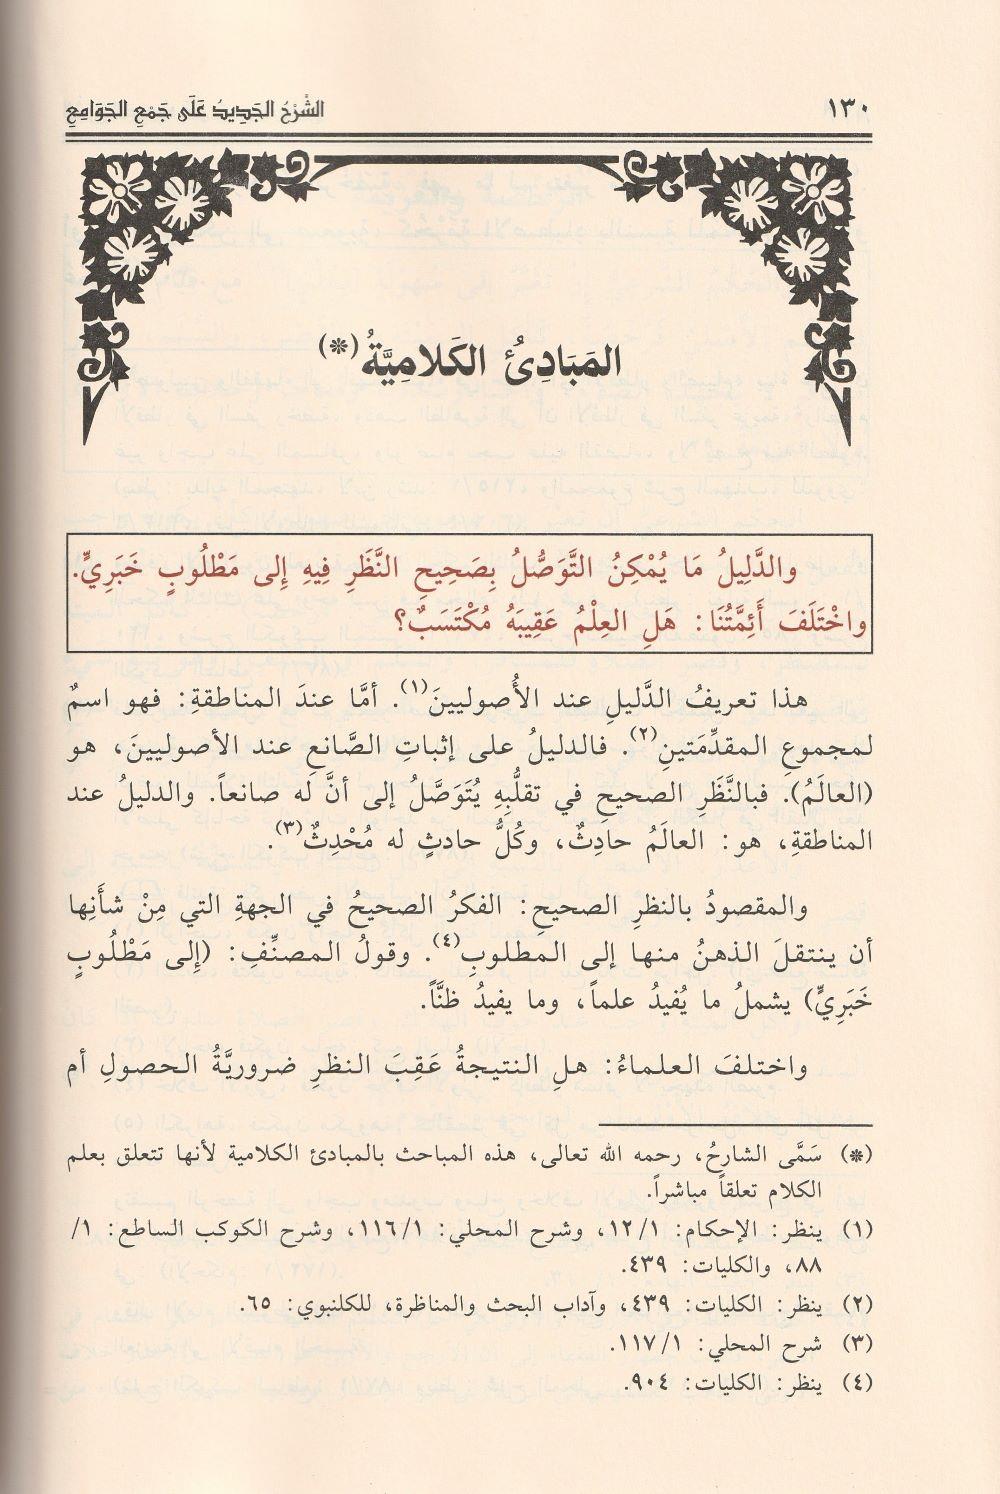 ١٣٠
الشَّرْحُ الجَدِيدُ عَلَى جَمْعِ الجَوَامِعِ
المَبَادِئُ الكَلامِيَّةُ(*)
والدَّلِيلُ مَا يُمْكِنُ التَّوَصُّلُ بِصَحِيحِ النَّظَرِ فِيهِ إِلى مَطْلُوبٍ خَبَرِيٍّ.
واخْتَلَفَ أَئِمَّتُنَا: هَلِ العِلْمُ عَقِيبَهُ مُكْتَسَبٌ؟
هذا تعريفُ الدَّليلِ عند الأُصوليينَ(١). أمَّا عندَ المناطقةِ: فهو اسمٌ
لمجموعِ المقدِّمَتينِ(٢). فالدليلُ على إثباتِ الصَّانعِ عند الأصوليينَ، هو
(العالَمُ). فبالنَّظَرِ الصحيحِ في تقلُّبِهِ يُتَوَصَّلُ إلى أنَّ له صانعاً. والدليلُ عند
المناطقةِ، هو: العالَمُ حادِثٌ، وكُلُّ حادثٍ له مُحْدِثٌ(٣).
والمقصودُ بالنظرِ الصحيحِ: الفكرُ الصحيحُ في الجهةِ التي مِنْ شأَنِها
أن ينتقلَ الذهنُ منها إلى المطلوبِ(٤). وقولُ المصنِّفِ: (إِلى مَطْلُوبٍ
خَبَرِيٍّ) يشملُ ما يُفيدُ علماً، وما يفيدُ ظنَّاً.
واختلفَ العلماءُ: هلِ النتيجةُ عَقِبَ النظرِ ضروريَّةُ الحصولِ أم
(*) سَمَّى الشارحُ، رحمه الله تعالى، هذه المباحث بالمبادئ الكلامية لأنها تتعلق بعلم
الكلام تعلقاً مباشراً.
(١) ينظر: الإحكام: ١٢/١، وشرح المحلي: ١١٦/١، وشرح الكوكب الساطع: ١/
٨٨، والكليات: ٤٣٩.
(٢) ينظر: الكليات: ٤٣٩، وآداب البحث والمناظرة، للكلنبوي: ٦٥.
(٣) شرح المحلي: ١١٧/١.
(٤) ينظر: الكليات: ٩٠٤.